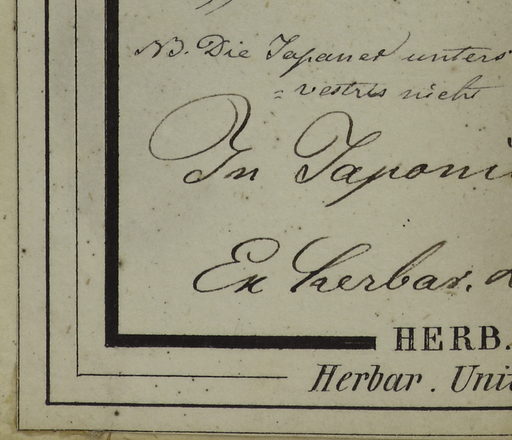 NB. Die Japaner unters
= vestris nicht
In Japoni
Ex herbar. d
HERB.
Herbar. Unit